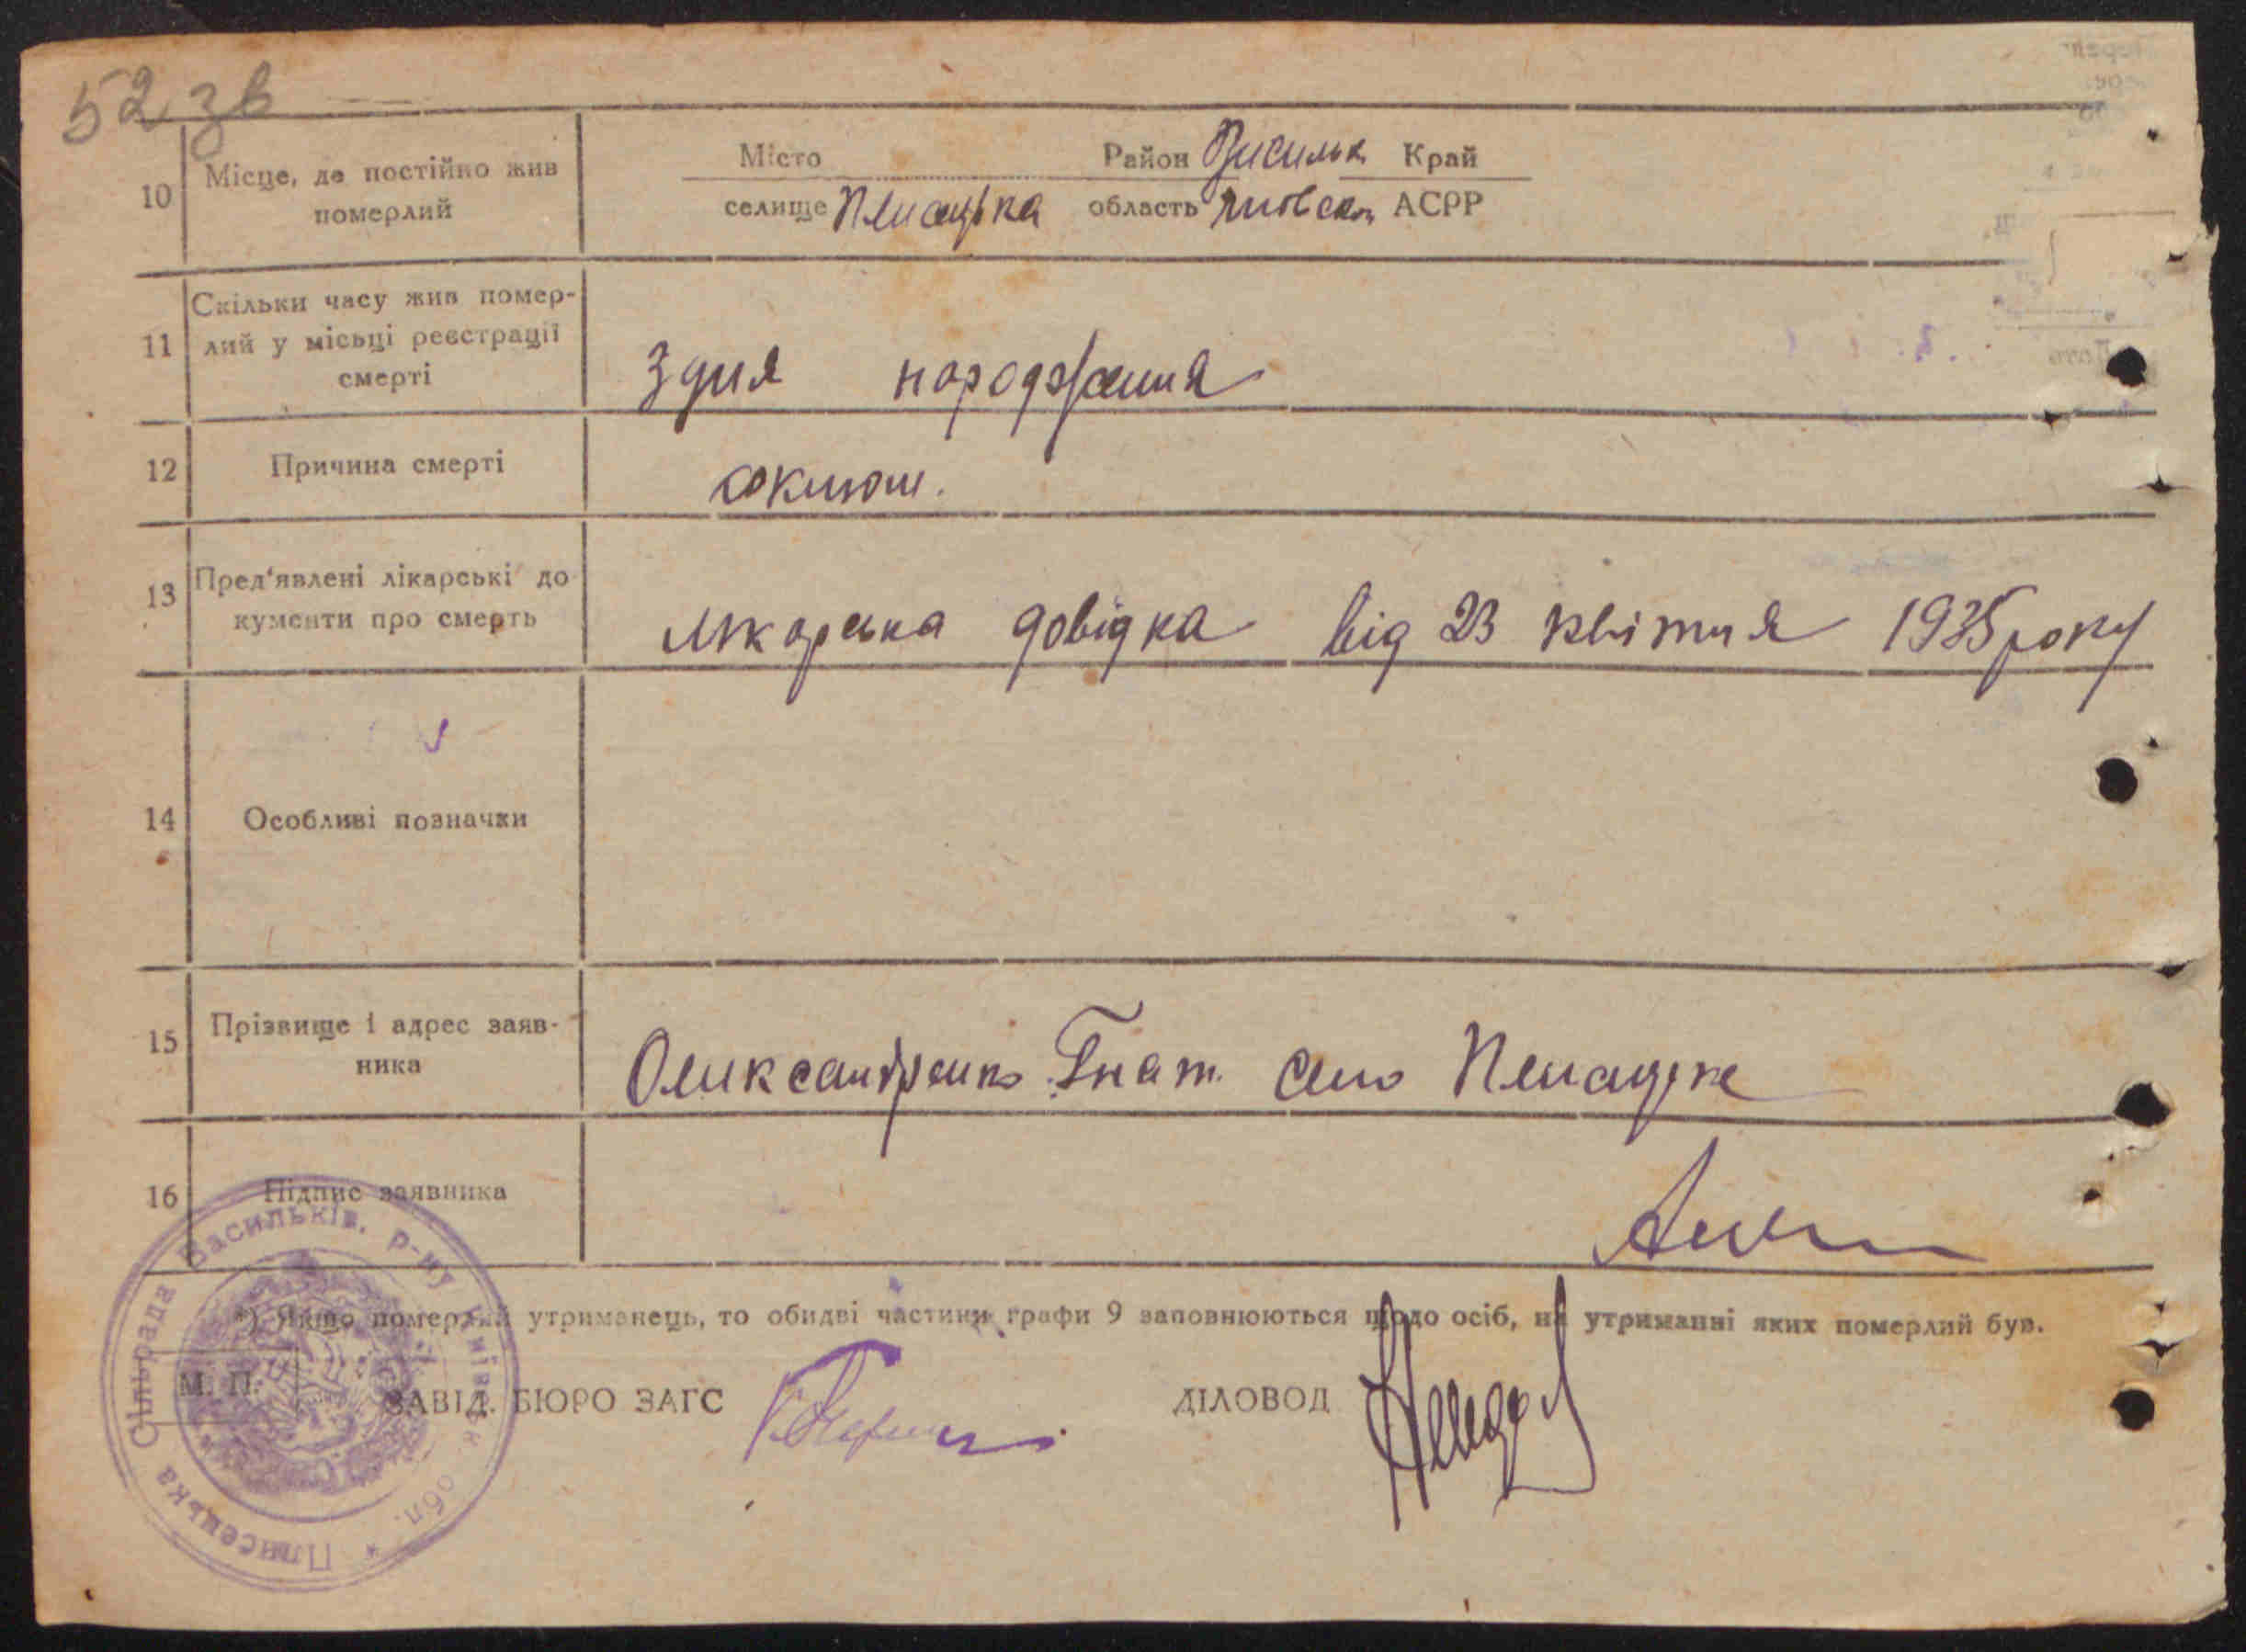 52 зв
10 Місце, де постійно жив померлий
Місто Район Васильк Край
селище Плисецька область АСРР
11 Скільки часу жив помер-
лий у місьці реєстрації
смерті
З дня народження
12 Причина смерті
коклюш.
13 Пред'явлені лікарські до
кументи про смерть
лікарська довідка від 23 квітня 1935 року
14 Особливі позначки
15 Прізвище і адрес заяв-
ника
Олександренко Гнат. село Плисецке
16 Підпис заявника
*) Якщо померлий утриманець, то обидві частини графи 9 заповнюються щодо осіб, на утриманні яких померлий був.
М. П.
ЗАВІД. БЮРО ЗАГС ДІЛОВОД
Плисецька Сільрада Васильків. р-ну Київськ обл.